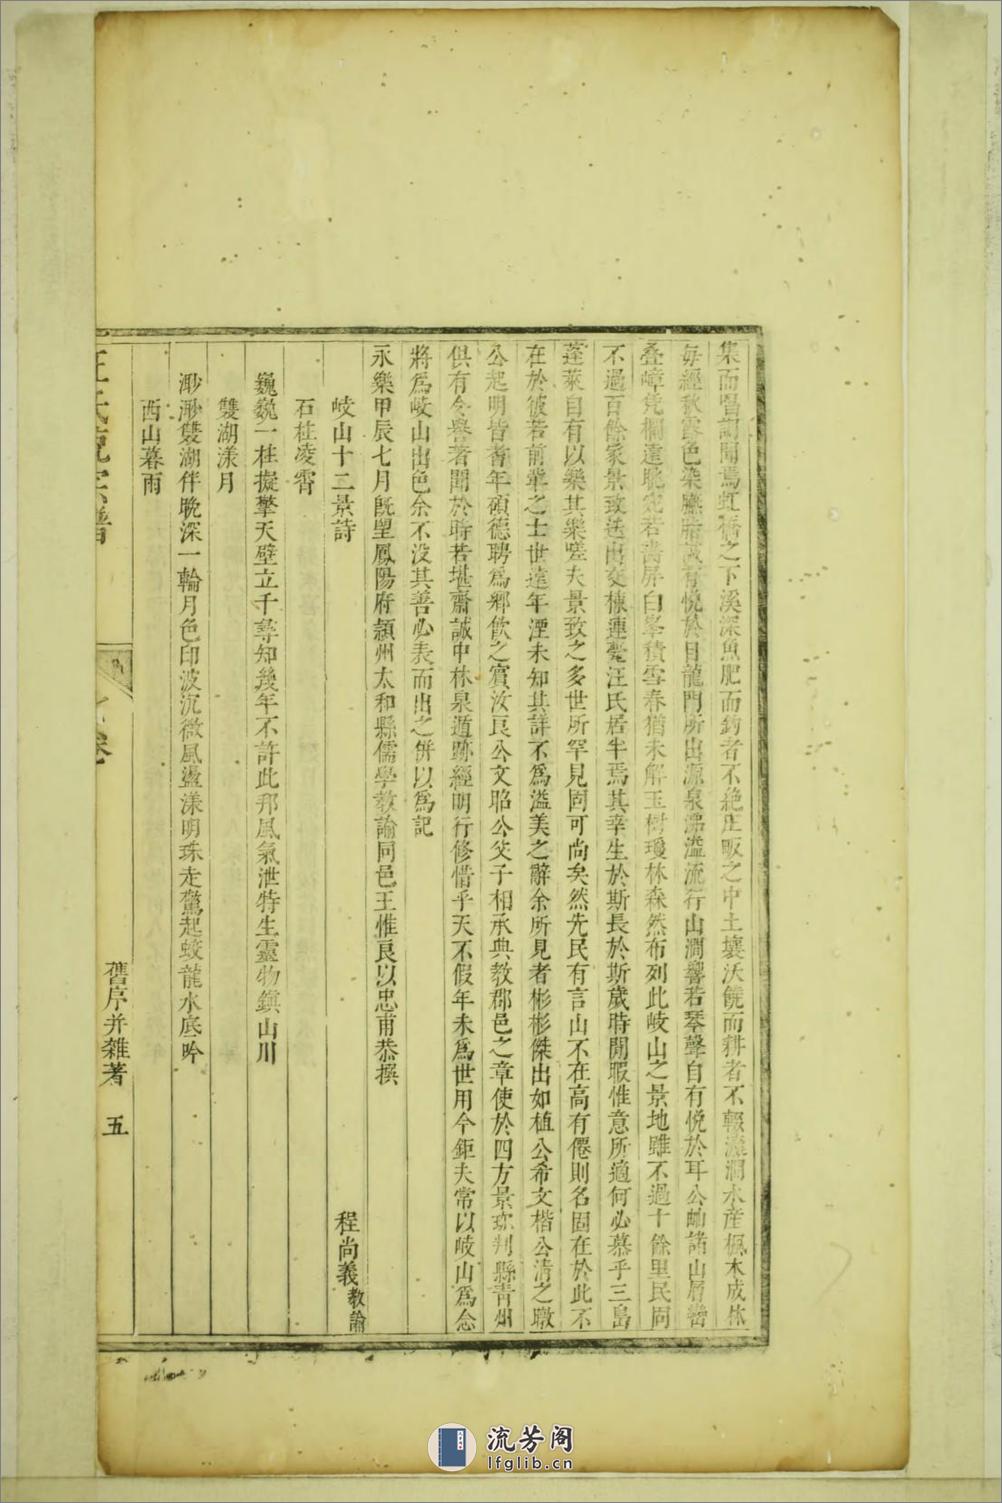 集而唱詶聞焉虹橋之下溪深魚肥而釣者不絶丘畈之中土壤沃饒而耕者不輟澨澗水産楓木成林
每經秋霞色染臙脂或有悅於目龍門所出源泉沸溢流行山澗響若琴聲自有悅於耳公岫諸山層巒
叠嶂凭欄遠眺宛若畵屏白峯積雪春猶未解玉樹瓊林森然布列此岐山之景地雖不過十餘里民同
不過百餘家景致迭出交棟連甍汪氏居半焉其幸生於斯長於斯歲時閒暇惟意所適何必慕乎三島
蓬萊自有以樂其樂嗟夫景致之多世所罕見固可尚矣然先民有言山不在高有僊則名固在於此不
在於彼若前輩之士世遠年湮未知其詳不爲溢美之辭余所見者彬彬傑出如植公希文楷公清之暾
公起明皆耆年碩德聘爲鄉飲之賓汝良公文昭公父子相承典教郡邑之章使於四方景琮判縣青州
俱有令譽著聞於時若堪齋誠中林泉遁跡經明行修惜乎天不假年未爲世用今鉅夫常以岐山爲念
將爲岐山出色余不没其善必表而出之併以爲記
永樂甲辰七月旣望鳳陽府頴州太和縣儒學教諭同邑王惟良以忠甫恭撰
岐山十二景詩 程尚義教諭
石柱凌霄
巍巍一柱擬擎天壁立千尋知幾年不許此邦風氣泄特生靈物鎭山川
雙湖漾月
渺渺雙湖伴晩深一輪月色印波沉微風盪漾明珠走驚起蛟龍水底吟
西山暮雨
汪氏統宗譜 卷之 舊序并雜著 五
流芳阁
lfglib.cn